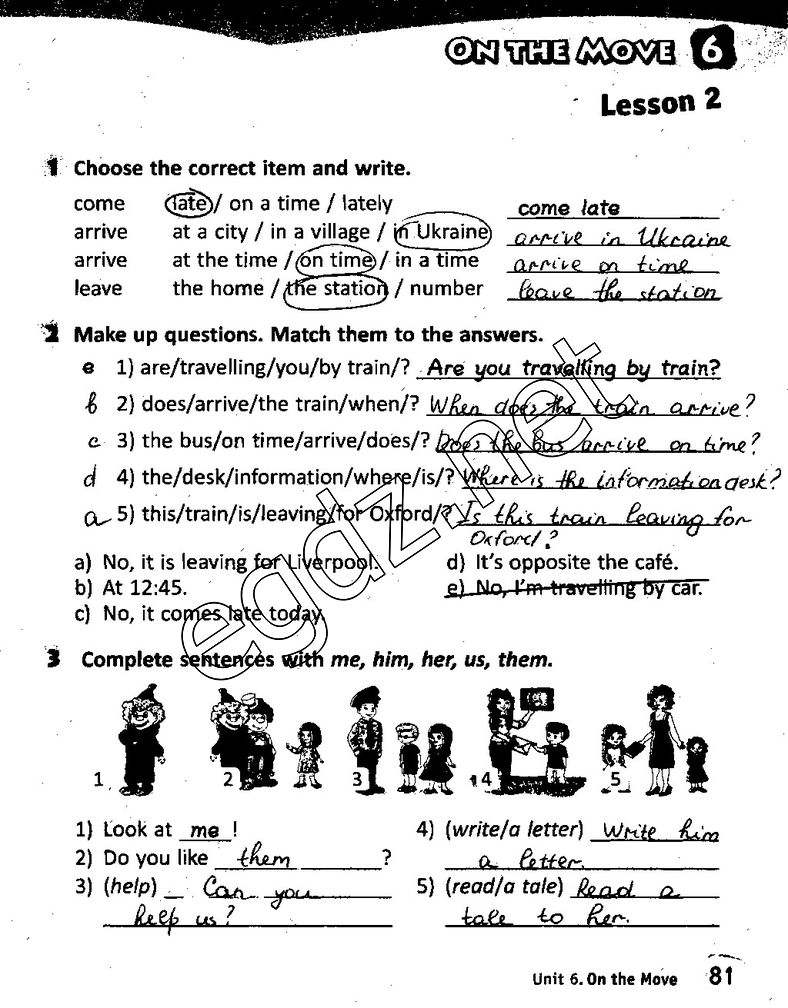 ON THE MOVE 6
Lesson 2
1 Choose the correct item and write.
come late / on a time / lately come late
arrive at a city / in a village / in Ukraine arrive in Ukraine
arrive at the time / on time / in a time arrive on time
leave the home / the station / number leave the station
2 Make up questions. Match them to the answers.
e 1) are/travelling/you/by train/? Are you travelling by train?
b 2) does/arrive/the train/when/? When does the train arrive?
c 3) the bus/on time/arrive/does/? Does the bus arrive on time?
d 4) the/desk/information/where/is/? Where is the information desk?
a 5) this/train/is/leaving/for Oxford/? Is this train leaving for
Oxford?
a) No, it is leaving for Liverpool. d) It's opposite the café.
b) At 12:45. e) No, I'm travelling by car.
c) No, it comes late today.
egdz.net
3 Complete sentences with me, him, her, us, them.
1 2 3 4 5
1) Look at me ! 4) (write/a letter) Write him
2) Do you like them ? a letter.
3) (help) Can you 5) (read/a tale) Read a
help us? tale to her.
Unit 6. On the Move 81